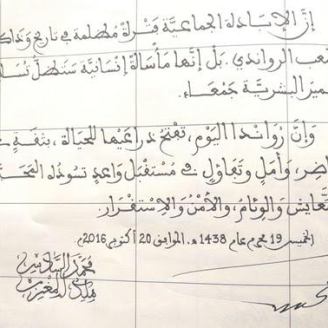 إنَّ الإبَادَة الجماعيَّة فَتْرةٌ مُظلمة في تاريخ وَذاك
عب الرواندي، بل إنَّها مأسَاةٌ إنْسَانيَّة سَتظلُّ
ميرَ البشريَّة جَمْعَاء.
وَإنَّ رُوَانْدا اليَوم، تَفْتَحُ ذراعَيْها للحيَاة، بثقَةٍ
ضِر، وأمَلٍ وَتفاؤلٍ في مُسْتقْبَل وَاعدٍ تسُودُه
تَّعايش وَالوئام، وَالأمْنُ وَالاسْتقْرار.
الخميس 19 محرم عام 1438 هـ، الموافق 20 أكتوبر 2016م.
محمد السادس
ملك المغرب